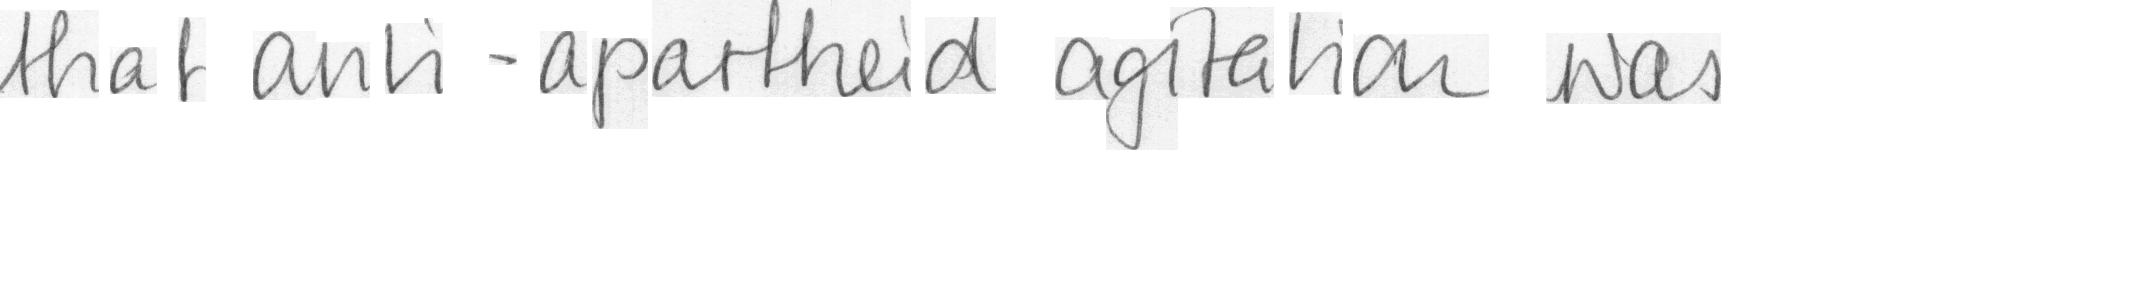 that anti-apartheid agitation was